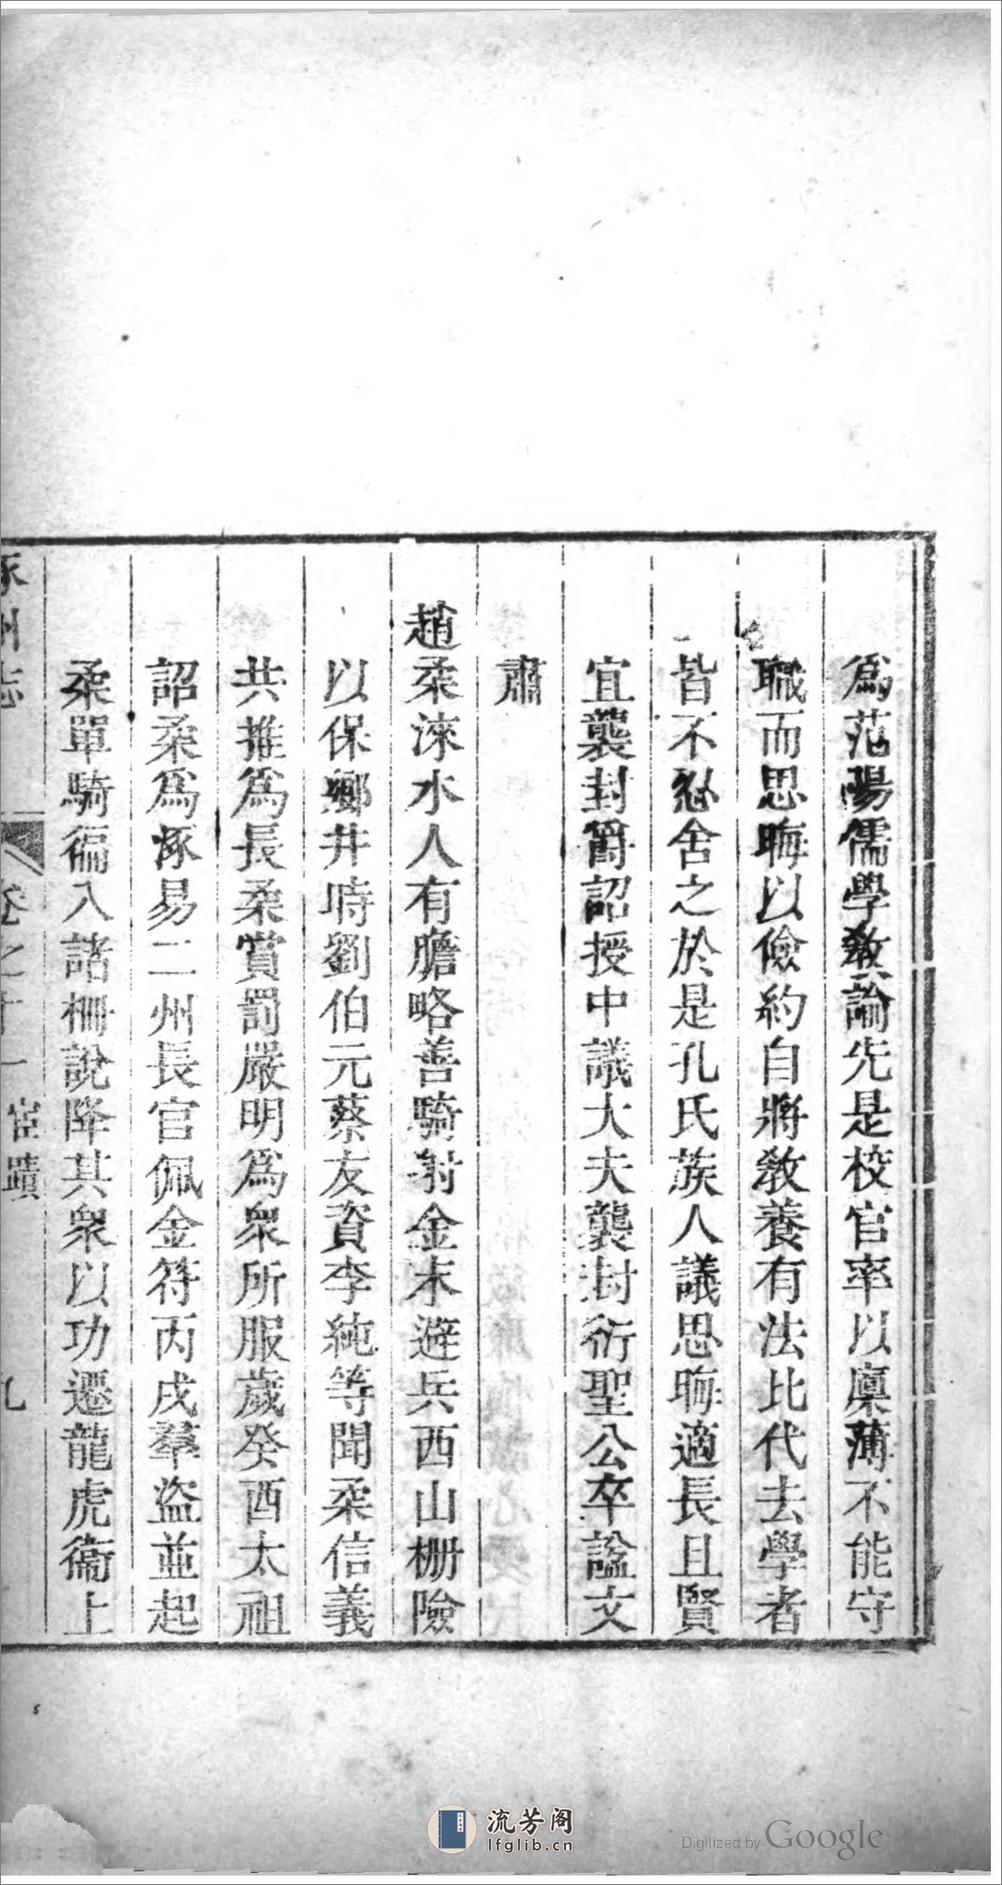 為范陽儒學教諭先是校官率以廩薄不能守
職而思晦以儉約自將教養有法比代去學者
皆不忍舍之於是孔氏族人議思晦適長且賢
宜襲封爵詔授中議大夫襲封衍聖公卒諡文
肅
趙柔淶水人有膽略善騎射金末避兵西山栅險
以保鄉井時劉伯元蔡友資李純等聞柔信義
共推為長柔賞罰嚴明為衆所服歲癸酉太祖
詔柔為涿易二州長官佩金符丙戌羣盜並起
柔單騎徧入諸柵說降其衆以功遷龍虎衞上
涿州志 卷之十一 宦蹟 九
流芳阁
lfglib.cn
Digitized by Google